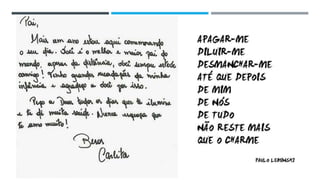 Pai,
Mais um ano estou aqui comemorando
o seu dia. Você é o melhor e maior pai do
mundo, apesar da distância, você sempre esteve
comigo! Tenho grandes recordações da minha
infância e agradeço a você por isso.
Peço a Deus todos os dias que te ilumine
e te dê muita saúde. Nunca esqueça que
te amo muito!
Beijos
Carlita
APAGAR-ME
DILUIR-ME
DESMANCHAR-ME
ATÉ QUE DEPOIS
DE MIM
DE NÓS
DE TUDO
NÃO RESTE MAIS
QUE O CHARME
PAULO LEMINSKI